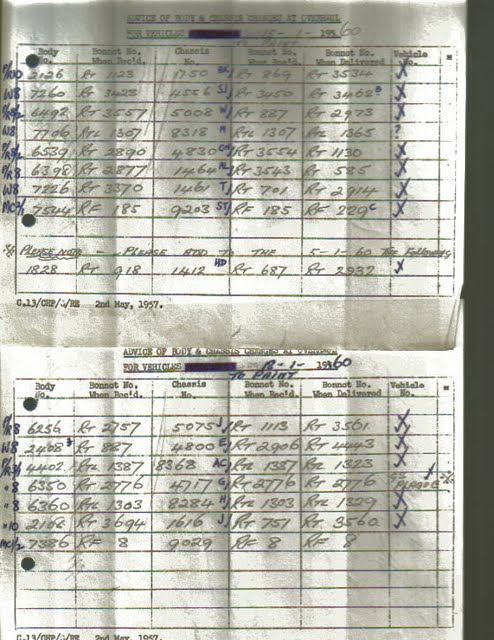 ADVICE OF BODY & CHASSIS CHANGES AT OVERHAUL
FOR VEHICLES 15-1- 1960
TO PAINT
Body No. Bonnet No. When Rec'd. Chassis No. Bonnet No. When Rec'd. Bonnet No. When Delivered Vehicle No.
2126 RT 1123 1750 RT 869 RT 3534 X
W8 7260 RT 3423 4556 SJ RT 3450 RT 3462 B X
6492 RT 3557 5008 W RT 887 RT 2973 X
W8 7706 RTL 1307 8318 M RTL 1307 RTL 1365 ?
6539 RT 2890 4830 RT 3554 RT 1130 X
6398 RT 2877 1464 AL RT 3543 RT 585 X
W8 7226 RT 3370 1461 T RT 701 RT 2914 X
7544 RF 185 9203 ST RF 185 RF 229 C X
PLEASE NOTE - PLEASE ADD TO THE 5-1-60 THE FOLLOWING
1828 RT 918 1412 HD RT 687 RT 2937 X
C.13/CHP/J/RE 2nd May, 1957.
ADVICE OF BODY & CHASSIS CHANGES AT OVERHAUL
FOR VEHICLES 18-1- 1960
TO PAINT
Body No. Bonnet No. When Rec'd. Chassis No. Bonnet No. When Rec'd. Bonnet No. When Delivered Vehicle No.
6256 RT 2757 5075 J RT 1113 RT 3561 X
W8 2408 3 RT 887 4800 E RT 2906 RT 4443 X
4402 RTL 1387 8368 AC RTL 1387 RTL 1323 X
8 6350 RT 2776 4717 G RT 2776 RT 2776 PLAQUE X
8 6360 RTL 1303 8284 H RTL 1303 RTL 1329 X
10 RT 3694 1616 J RT 751 RT 3560 X
7386 RF 8 9029 RF 8 RF 8
C.13/CHP/J/RE 2nd May, 1957.